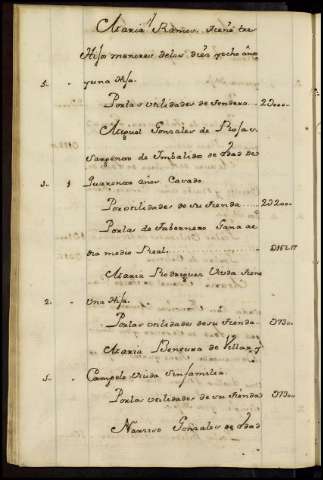 Maria Ramos, tiene tres
Hijos menores delos dies yocho años
5. - yuna Hija.
Por las utilidades de tendera 2D200..
Miguel Gonzales de Rosas
Sargento de Imbalido de Edad de
3. 1 Quarenta años Casado
Por utilidades de su tienda 2D200..
Por las de tabernero Gana al
dia medio Real
Maria Rodriguez Viuda tiene
2. - Una Hija.
Por las utilidades de su tienda D730..
Maria Bentura de Villar y
1. - Campelo Viuda sin familia
Por las utilidades de su tienda D730..
Narciso Gonzales de Edad